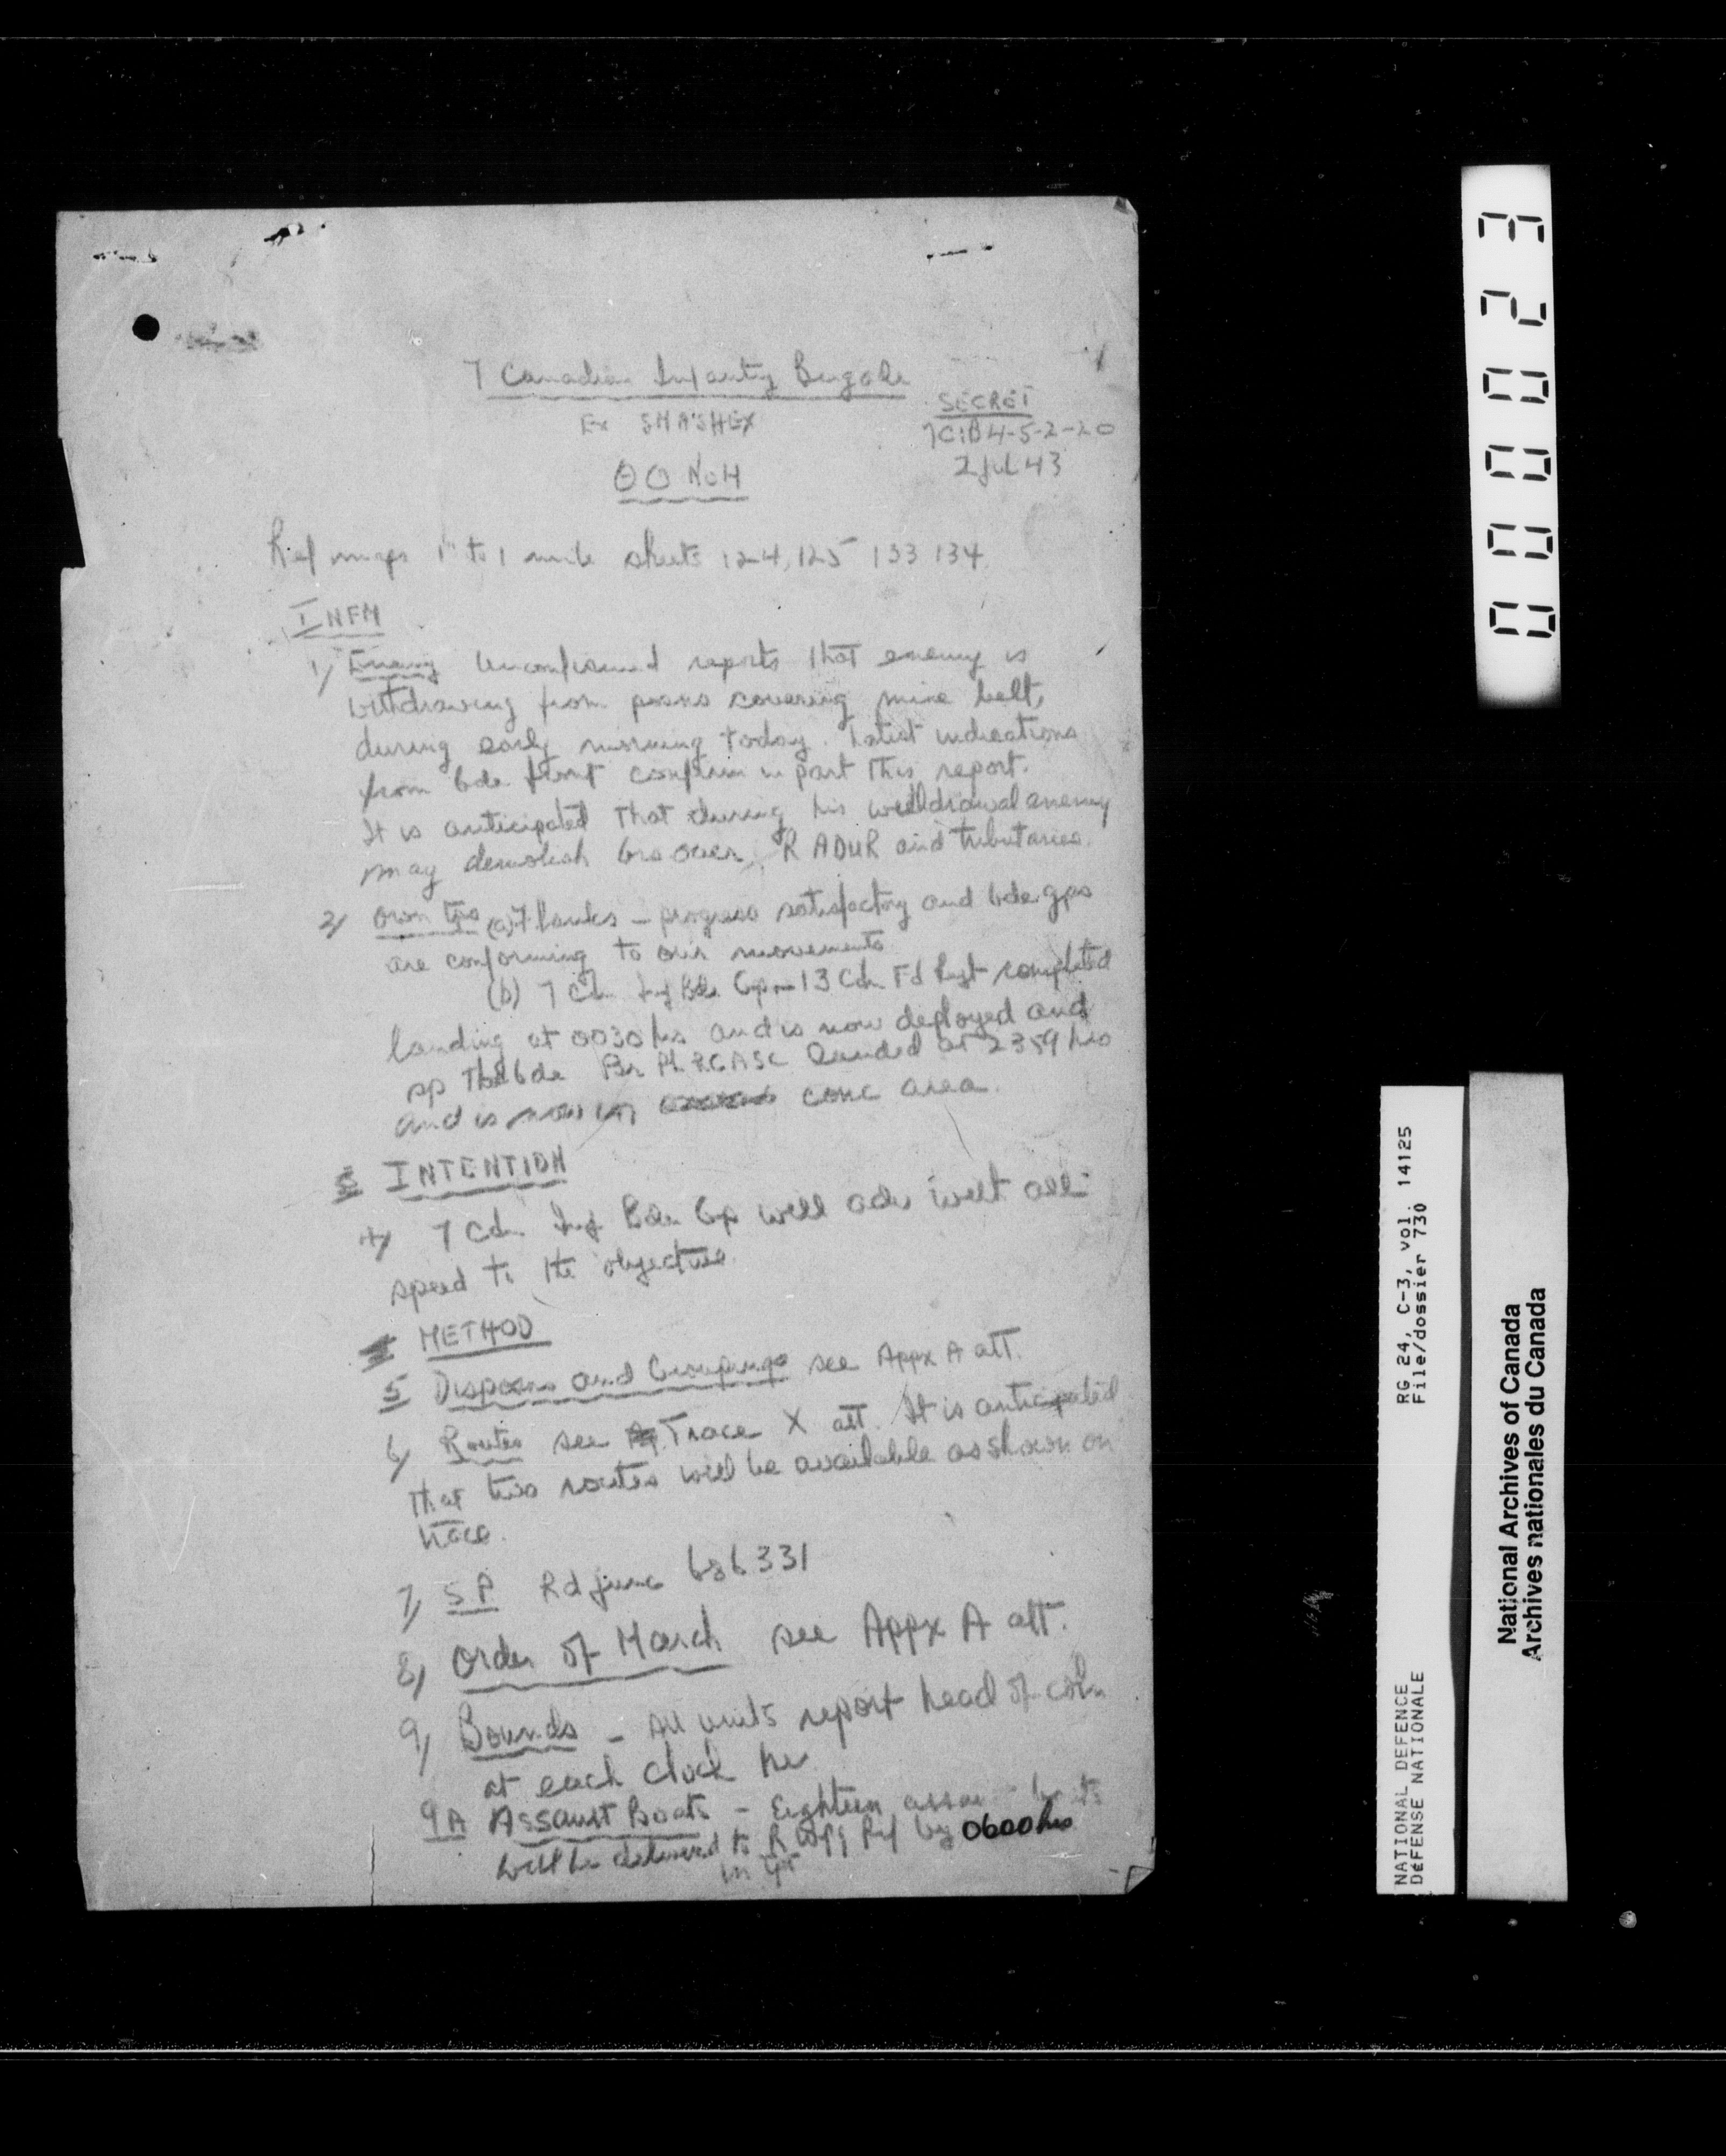 7 Canadian Infantry Brigade
Ex SMASHEX
SECRET
7CIB 4-5-2-20
2 Jul 43
OO No 4
Ref maps 1" to 1 mile sheets 124, 125 133 134
INFM
1) Enemy Unconfirmed reports that enemy is
withdrawing from posns covering mine belt,
during early morning today. Latest indications
from bde front confirm in part this report.
It is anticipated that during his withdrawal enemy
may demolish brs over R ADUR and tributaries.
2) Own tps (a) Flanks – progress satisfactory and bde gps
are conforming to our movements
(b) 7 Cdn Inf Bde Gp – 13 Cdn Fd Regt completed
landing at 0030 hrs and is now deployed and
sp the bde Br Pl RCASC landed at 2359 hrs
and is now in conc area.
INTENTION
4) 7 Cdn Inf Bde Gp will adv with all
speed to the objective.
METHOD
5 Disposns and Groupings see Appx A att.
6) Routes see Trace X att. It is anticipated
that two routes will be available as shown on
trace.
7) SP Rd junc 686331
8) Order of March see Appx A att.
9) Bounds – All units report head of coln
at each clock hr
9A Assault Boats – Eighteen boats
will be delivered to R Wpg Rif by 0600 hrs
000023
RG 24, C-3, vol. 14125
File/dossier 730
NATIONAL DEFENCE
DÉFENSE NATIONALE
National Archives of Canada
Archives nationales du Canada